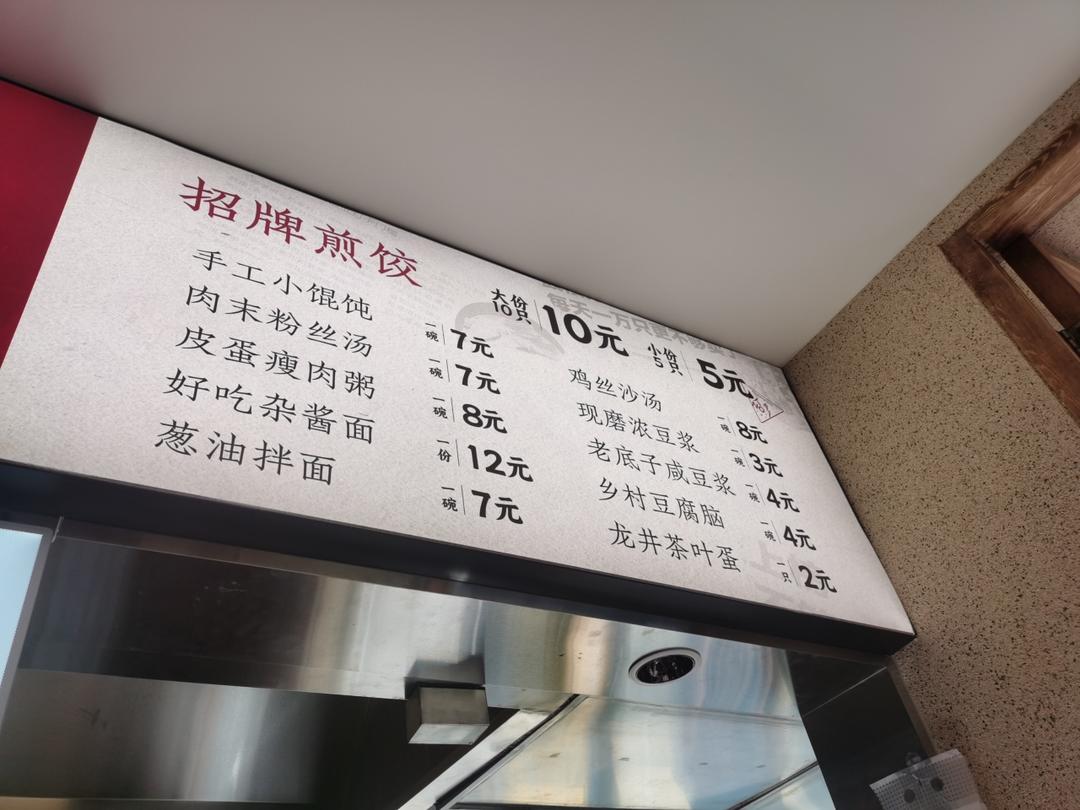 招牌煎饺 大份 10只 10元 小份 5只 5元
手工小馄饨 一碗 7元
肉末粉丝汤 一碗 7元
皮蛋瘦肉粥 一碗 8元
好吃杂酱面 一份 12元
葱油拌面 一碗 7元
鸡丝沙汤 一碗 8元
现磨浓豆浆 一碗 3元
老底子咸豆浆 一碗 4元
乡村豆腐脑 一碗 4元
龙井茶叶蛋 一只 2元
每天一万只